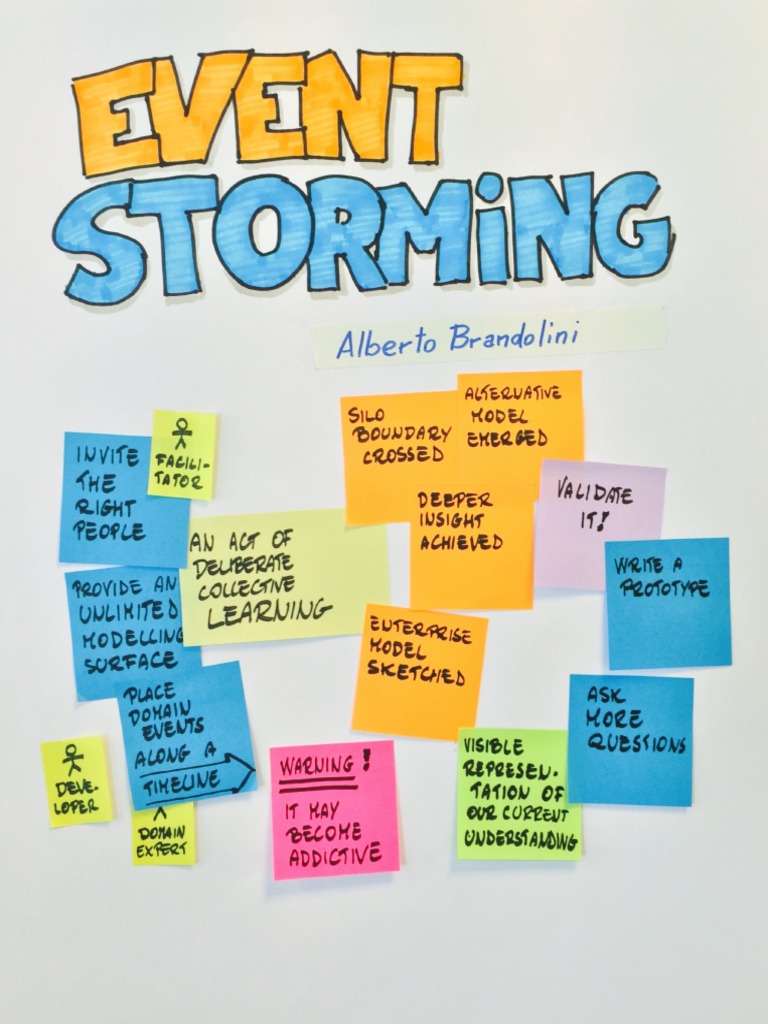 EVENT
STORMiNG
Alberto Brandolini
INVITE
THE
RIGHT
PEOPLE
FACILI-
TATOR
PROVIDE AN
UNLIMITED
MODELLING
SURFACE
PLACE
DOMAIN
EVENTS
ALONG A
TIMELINE
DEVE-
LOPER
DOMAIN
EXPERT
AN ACT OF
DELIBERATE
COLLECTIVE
LEARNING
SILO
BOUNDARY
CROSSED
ALTERNATIVE
MODEL
EMERGED
DEEPER
INSIGHT
ACHIEVED
ENTERPRISE
MODEL
SKETCHED
VALIDATE
IT!
WRITE A
PROTOTYPE
ASK
MORE
QUESTIONS
VISIBLE
REPRESEN-
TATION OF
OUR CURRENT
UNDERSTANDING
WARNING!
IT MAY
BECOME
ADDICTIVE